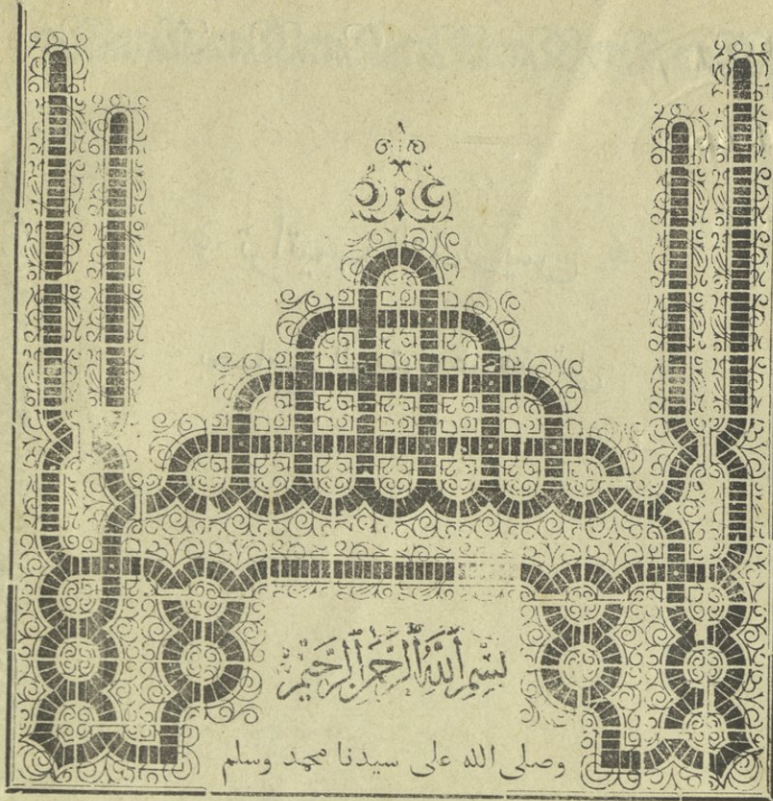 بسم الله الرحمن الرحيم
وصلى الله على سيدنا محمد وسلم